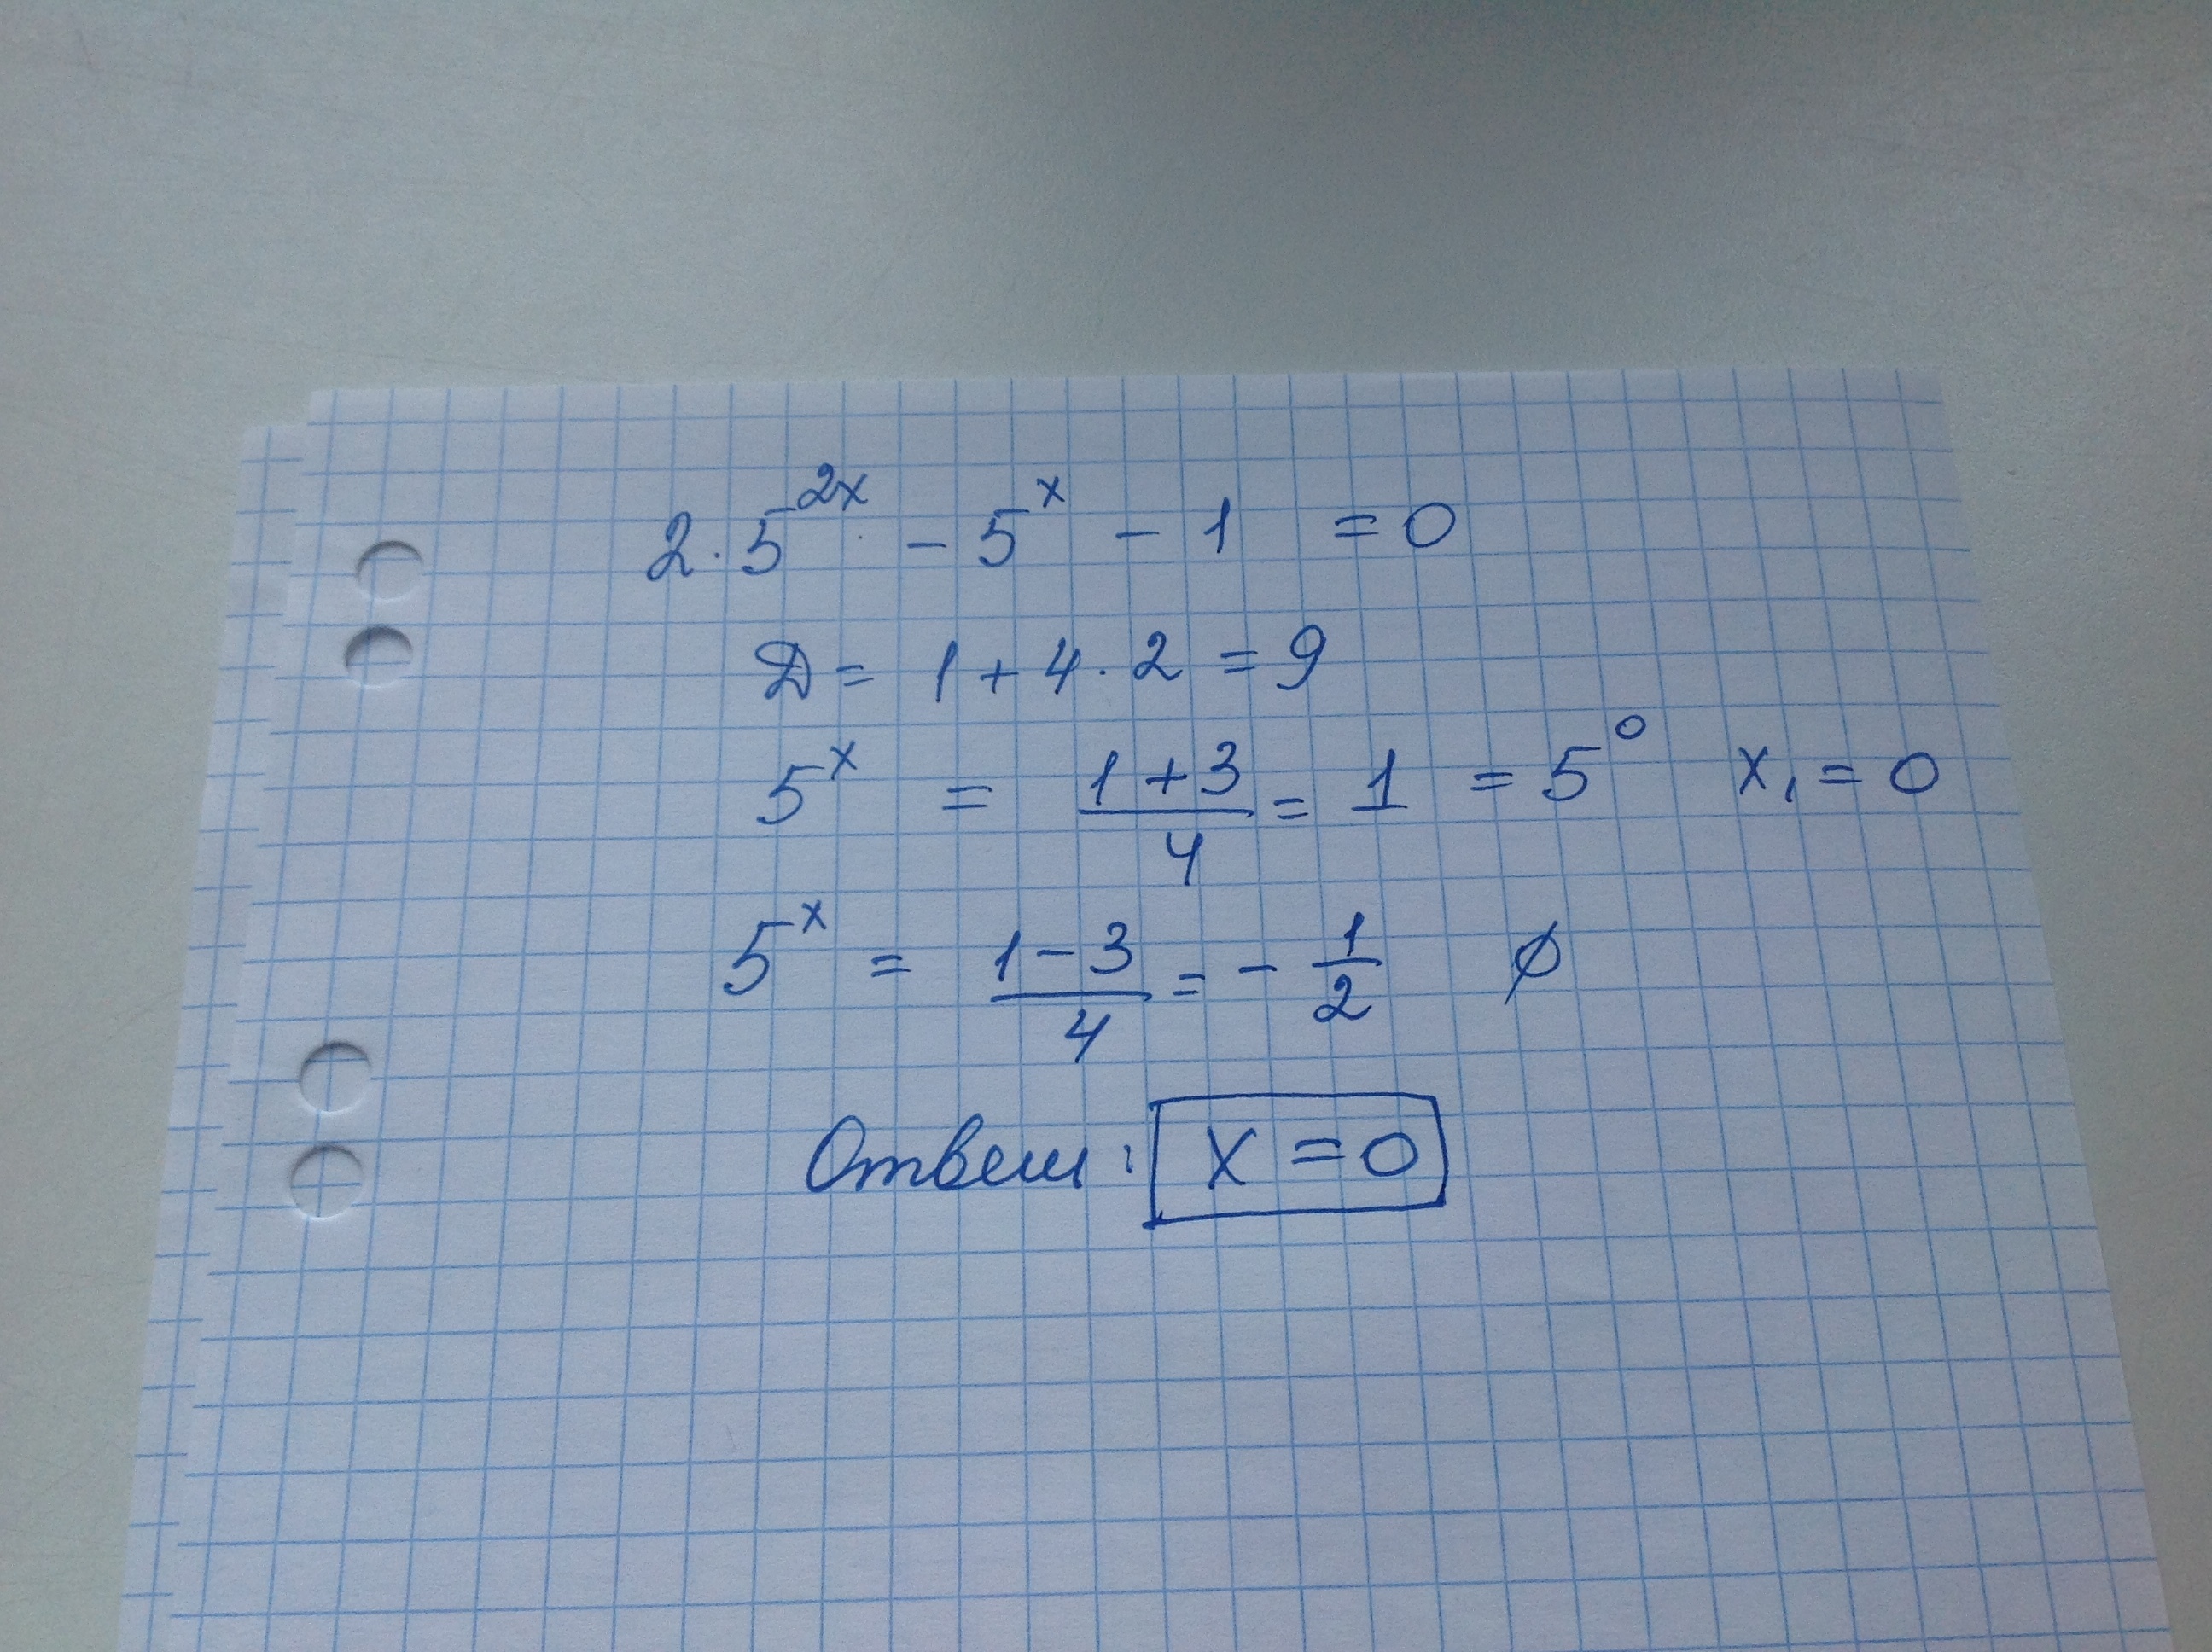 2·5^{2x} - 5^x - 1 = 0
Д = 1 + 4·2 = 9
5^x = \frac{1+3}{4} = 1 = 5^0 x_1 = 0
5^x = \frac{1-3}{4} = -\frac{1}{2} ∅
Ответ: x = 0